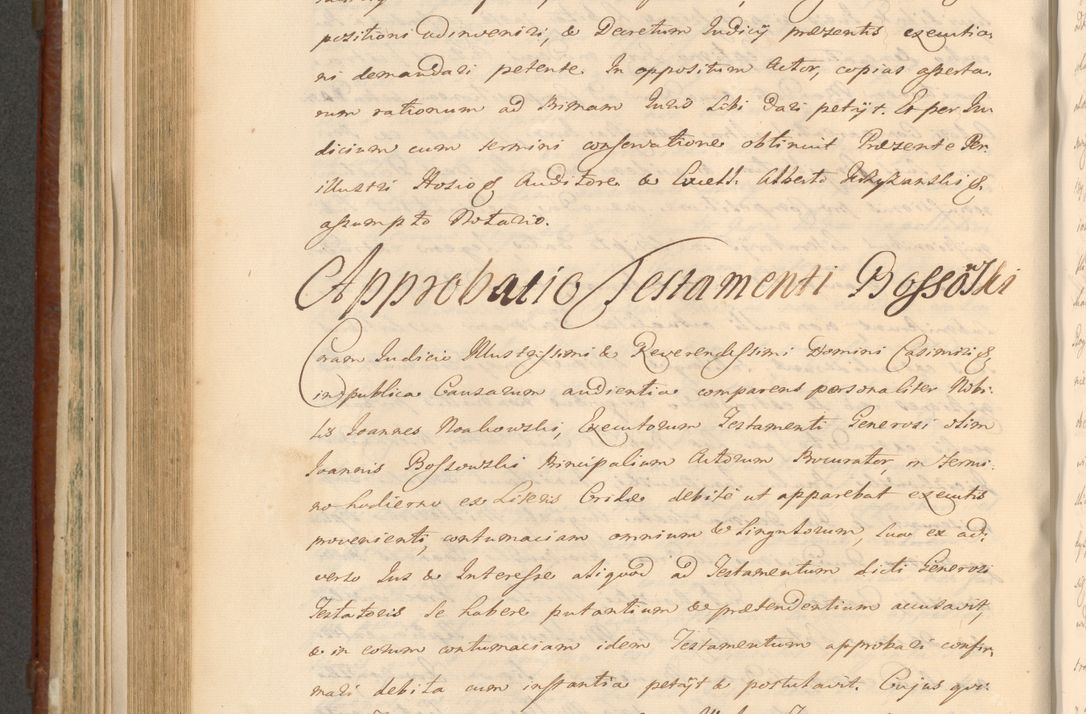 positioni adinveniri, & Decretum Iudicÿ præsentis executio,
ni demandari petente. In oppositum Actor, copias asserta,
rum rationum ad Primam Iuris sibi dari petÿt. Et per Iu
dicium cum termini conservatione obtinuit Præsente Per
illustri Hosio & Auditore & Excell. Alberto &
assumpto Notario.
Approbatio Testamenti Bossowski
Coram Iudicio Illustrissimi & Reverendissimi Domini Casimiri &
in publica Causarum audientia comparens personaliter Nobi
lis Ioannes Noakowski, Executorum Testamenti Generosi olim
Ioannis Bossowski Principalium Actorum Procurator, in Termi
no hodierno ex Literis Cridæ debitè ut apparebat executis
provenienti, contumaciam omnium & singulorum, sua ex ad,
verso Ius & Interesse aliquod ad Testamentum dicti Generosi
Testatoris se habere putantium & prætendentium accusavit,
& in eorum contumaciam idem Testamentum approbari confir,
mari debita cum instantia petÿt & postulavit. Cujus qui